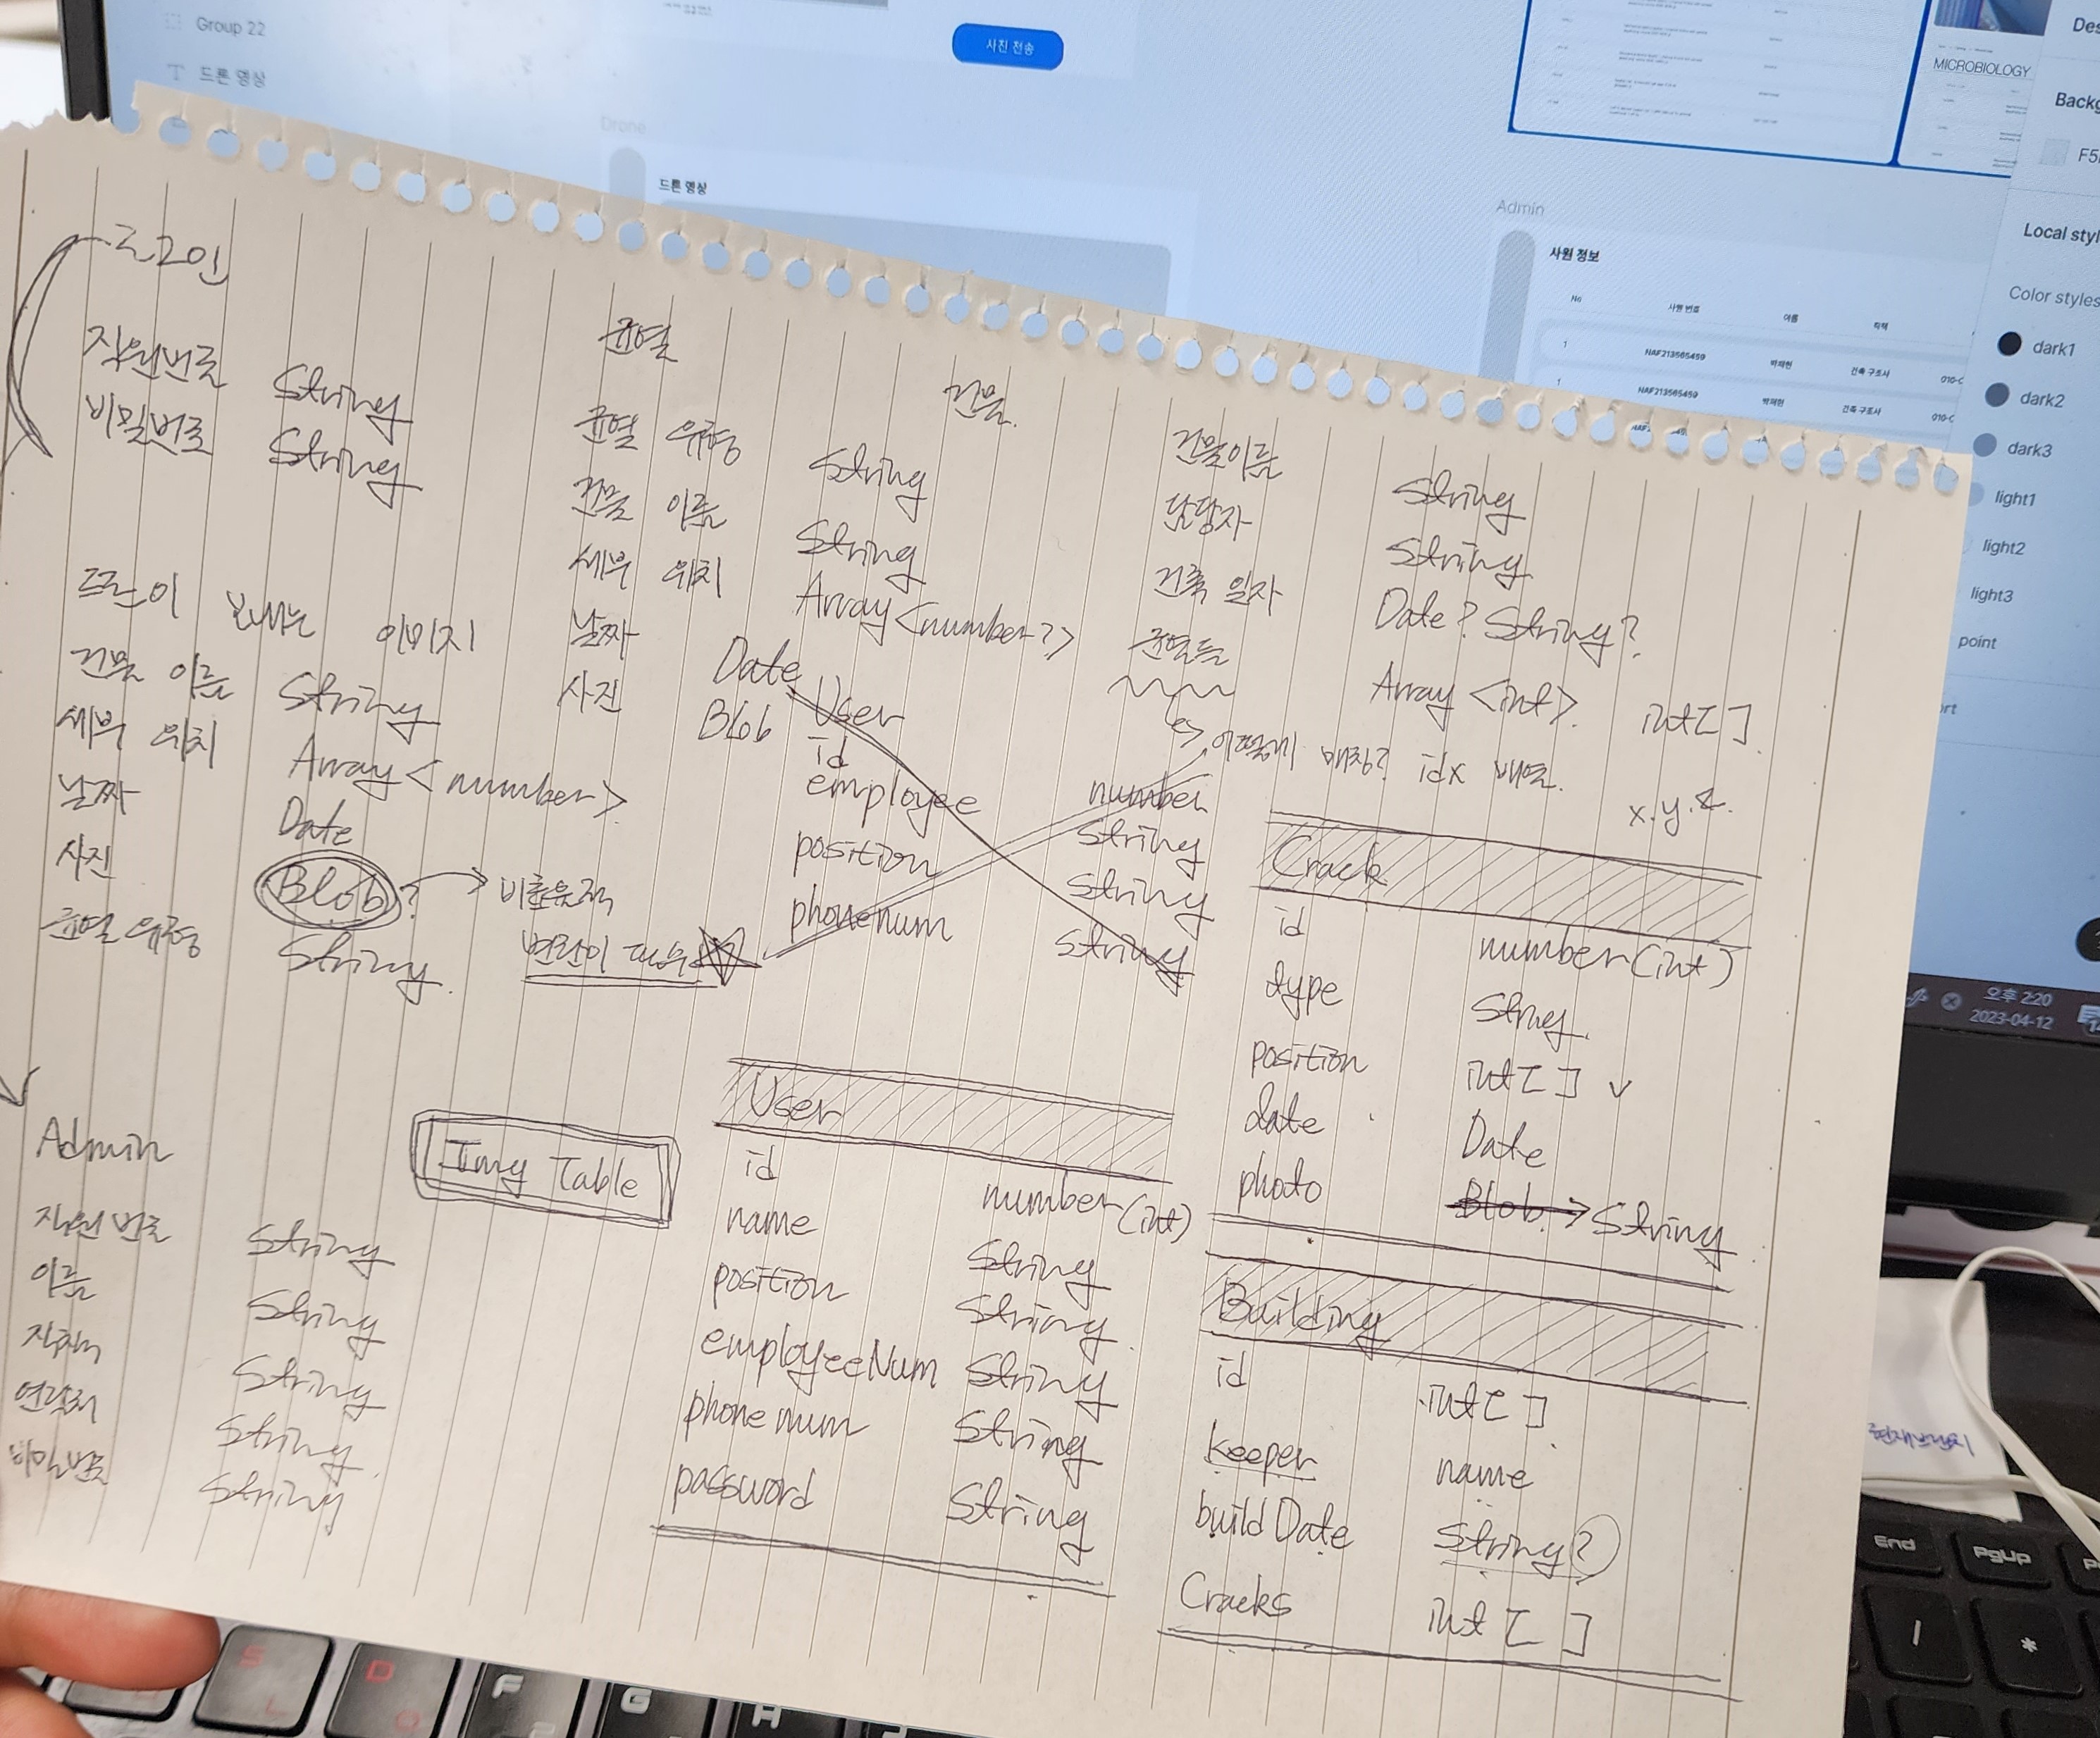 Group 22
드론 영상
사진 전송
MICROBIOLOGY
Des
Backg
F5
Drone
드론 영상
Admin
사원 정보
No 사원 번호 이름 직책
1 NAF213565459 박재현 건축 구조사 010-
1 NAF213565459 박재현 건축 구조사 010-
Local styl
Color styles
dark1
dark2
dark3
light1
light2
light3
point
로그인
직원번호 String
비밀번호 String
드론이 보내는 이미지
건물 이름 String
세부 위치 Array<number>
날짜 Date
사진 Blob?
균열 유형 String.
Admin
직원 번호 String
이름 String
직책 String
연락처 String.
비밀번호 String
균열
균열 유형 String
건물 이름 String
세부 위치 Array<number?>
날짜 Date
사진 Blob
User
id number
employee String
position String
phonenum String
건물.
건물이름 String
담당자 String
건축 일자 Date? String?
균열들 Array <int>. int[].
어떻게 매칭? idx 배열.
x.y.z.
Table
User
id number(int)
name String
position String
employeeNum String
phone num String
password String
Crack
id number(int)
type String
position int[] v
date Date
photo Blob → String
Building
id int[]
keeper name
build Date String?
Cracks int[]
오후 2:20
2023-04-12
End
PgUp
S
D
F
G
H
*